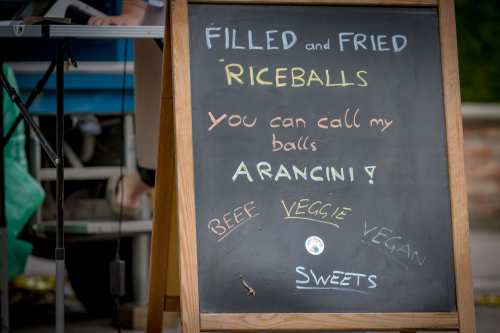 FILLED and FRIED
RICEBALLS
YOU can call my
balls
ARANCINI!
BEEF VEGGIE VEGAN
SWEETS